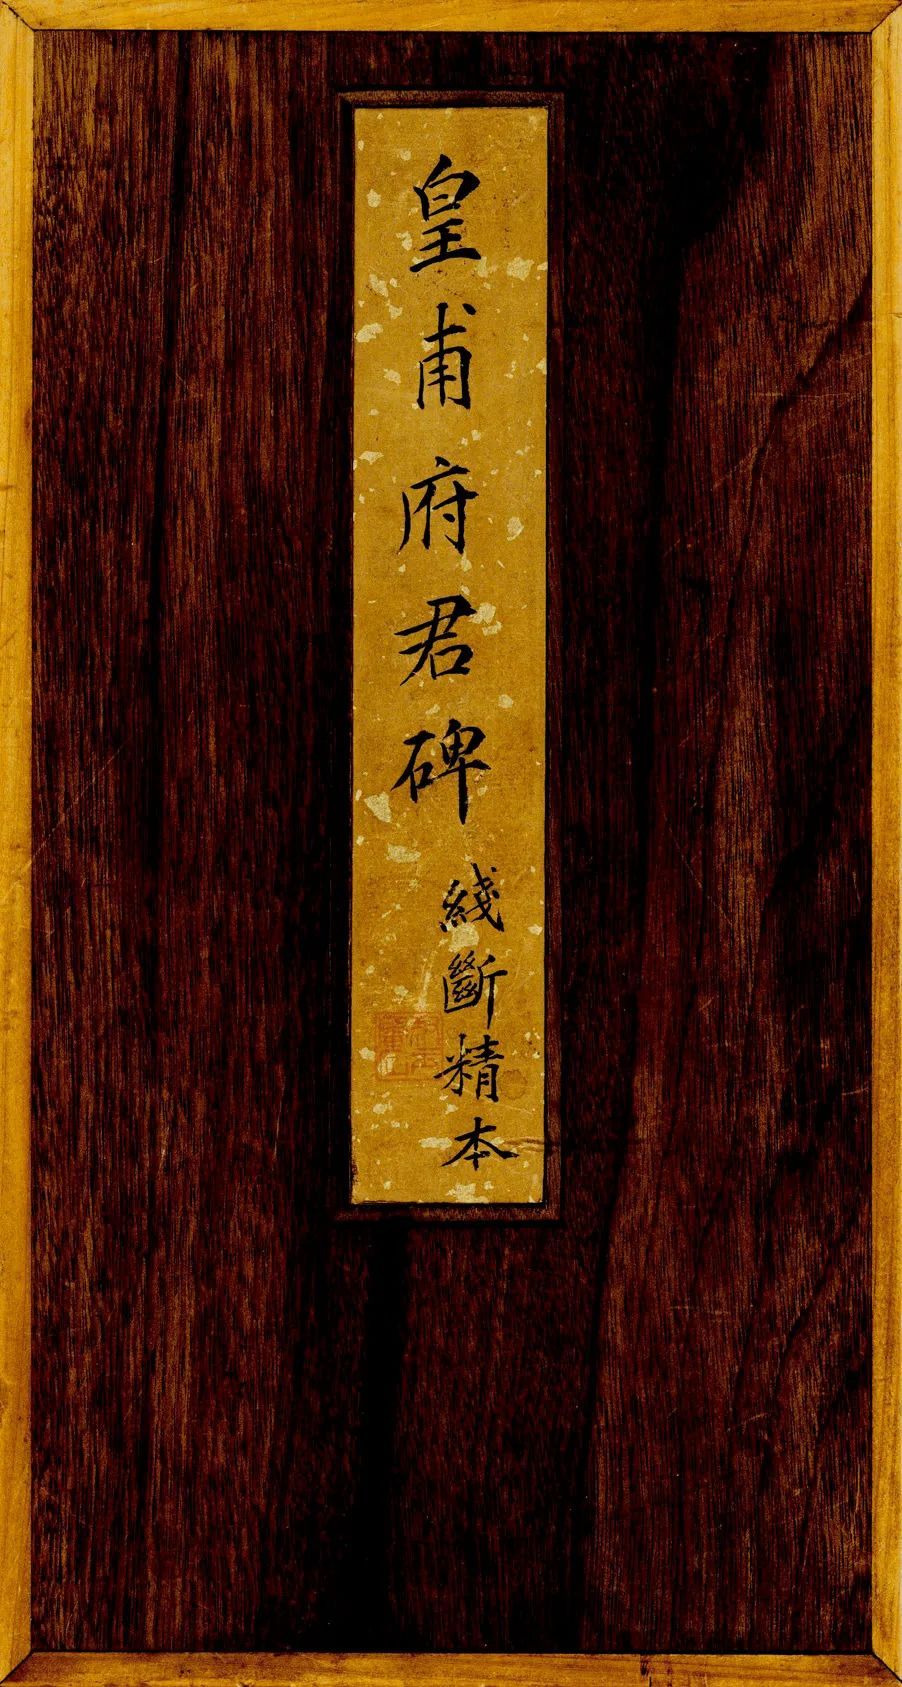 皇甫府君碑
綫斷精本